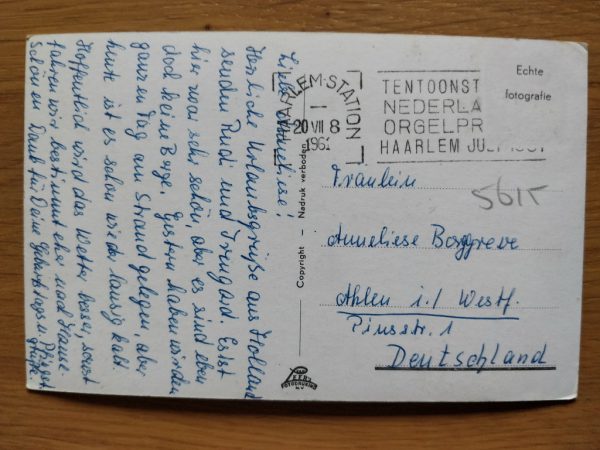 Liebe Anneliese!
Herzliche Urlaubsgrüße aus Holland
senden Rudi und Irmgard. Es ist
hier zwar sehr schön, aber es sind eben
doch keine Berge. Gestern haben wir den
ganzen Tag am Strand gelegen, aber
heute ist es schon wieder lausig kalt.
Hoffentlich wird das Wetter besser, sonst
fahren wir bestimmt eher nach Hause.
Schönen Dank für Deine Geburtstags u. Pfingst
grüße.
HAARLEM-STATION
20 VII 8
196
TENTOONST
NEDERLA
ORGELPR
HAARLEM JULI 1961
Echte
fotografie
Copyright – Nadruk verboden
5615
Fräulein
Anneliese Borggreve
Ahlen i./ Westf.
Piusstr. 1
Deutschland
FOTODRUKIND
N.V.